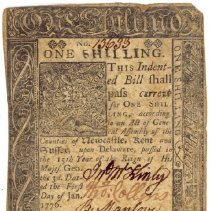 One Shilling
No. 13693
ONE SHILLING.
THIS Indent-
ed Bill shall
pass current
for ONE SHIL-
LING, according
to an Act of Gene-
ral Assembly of the
Counties of Newcastle, Kent and
Sussex upon Delaware, passed in
the 15th Year of the Reign of His
Majesty, Geo.
the 3d. Dated
the First
Day of Jan.
1776.
Jn. McKinly
ONE SHILLING